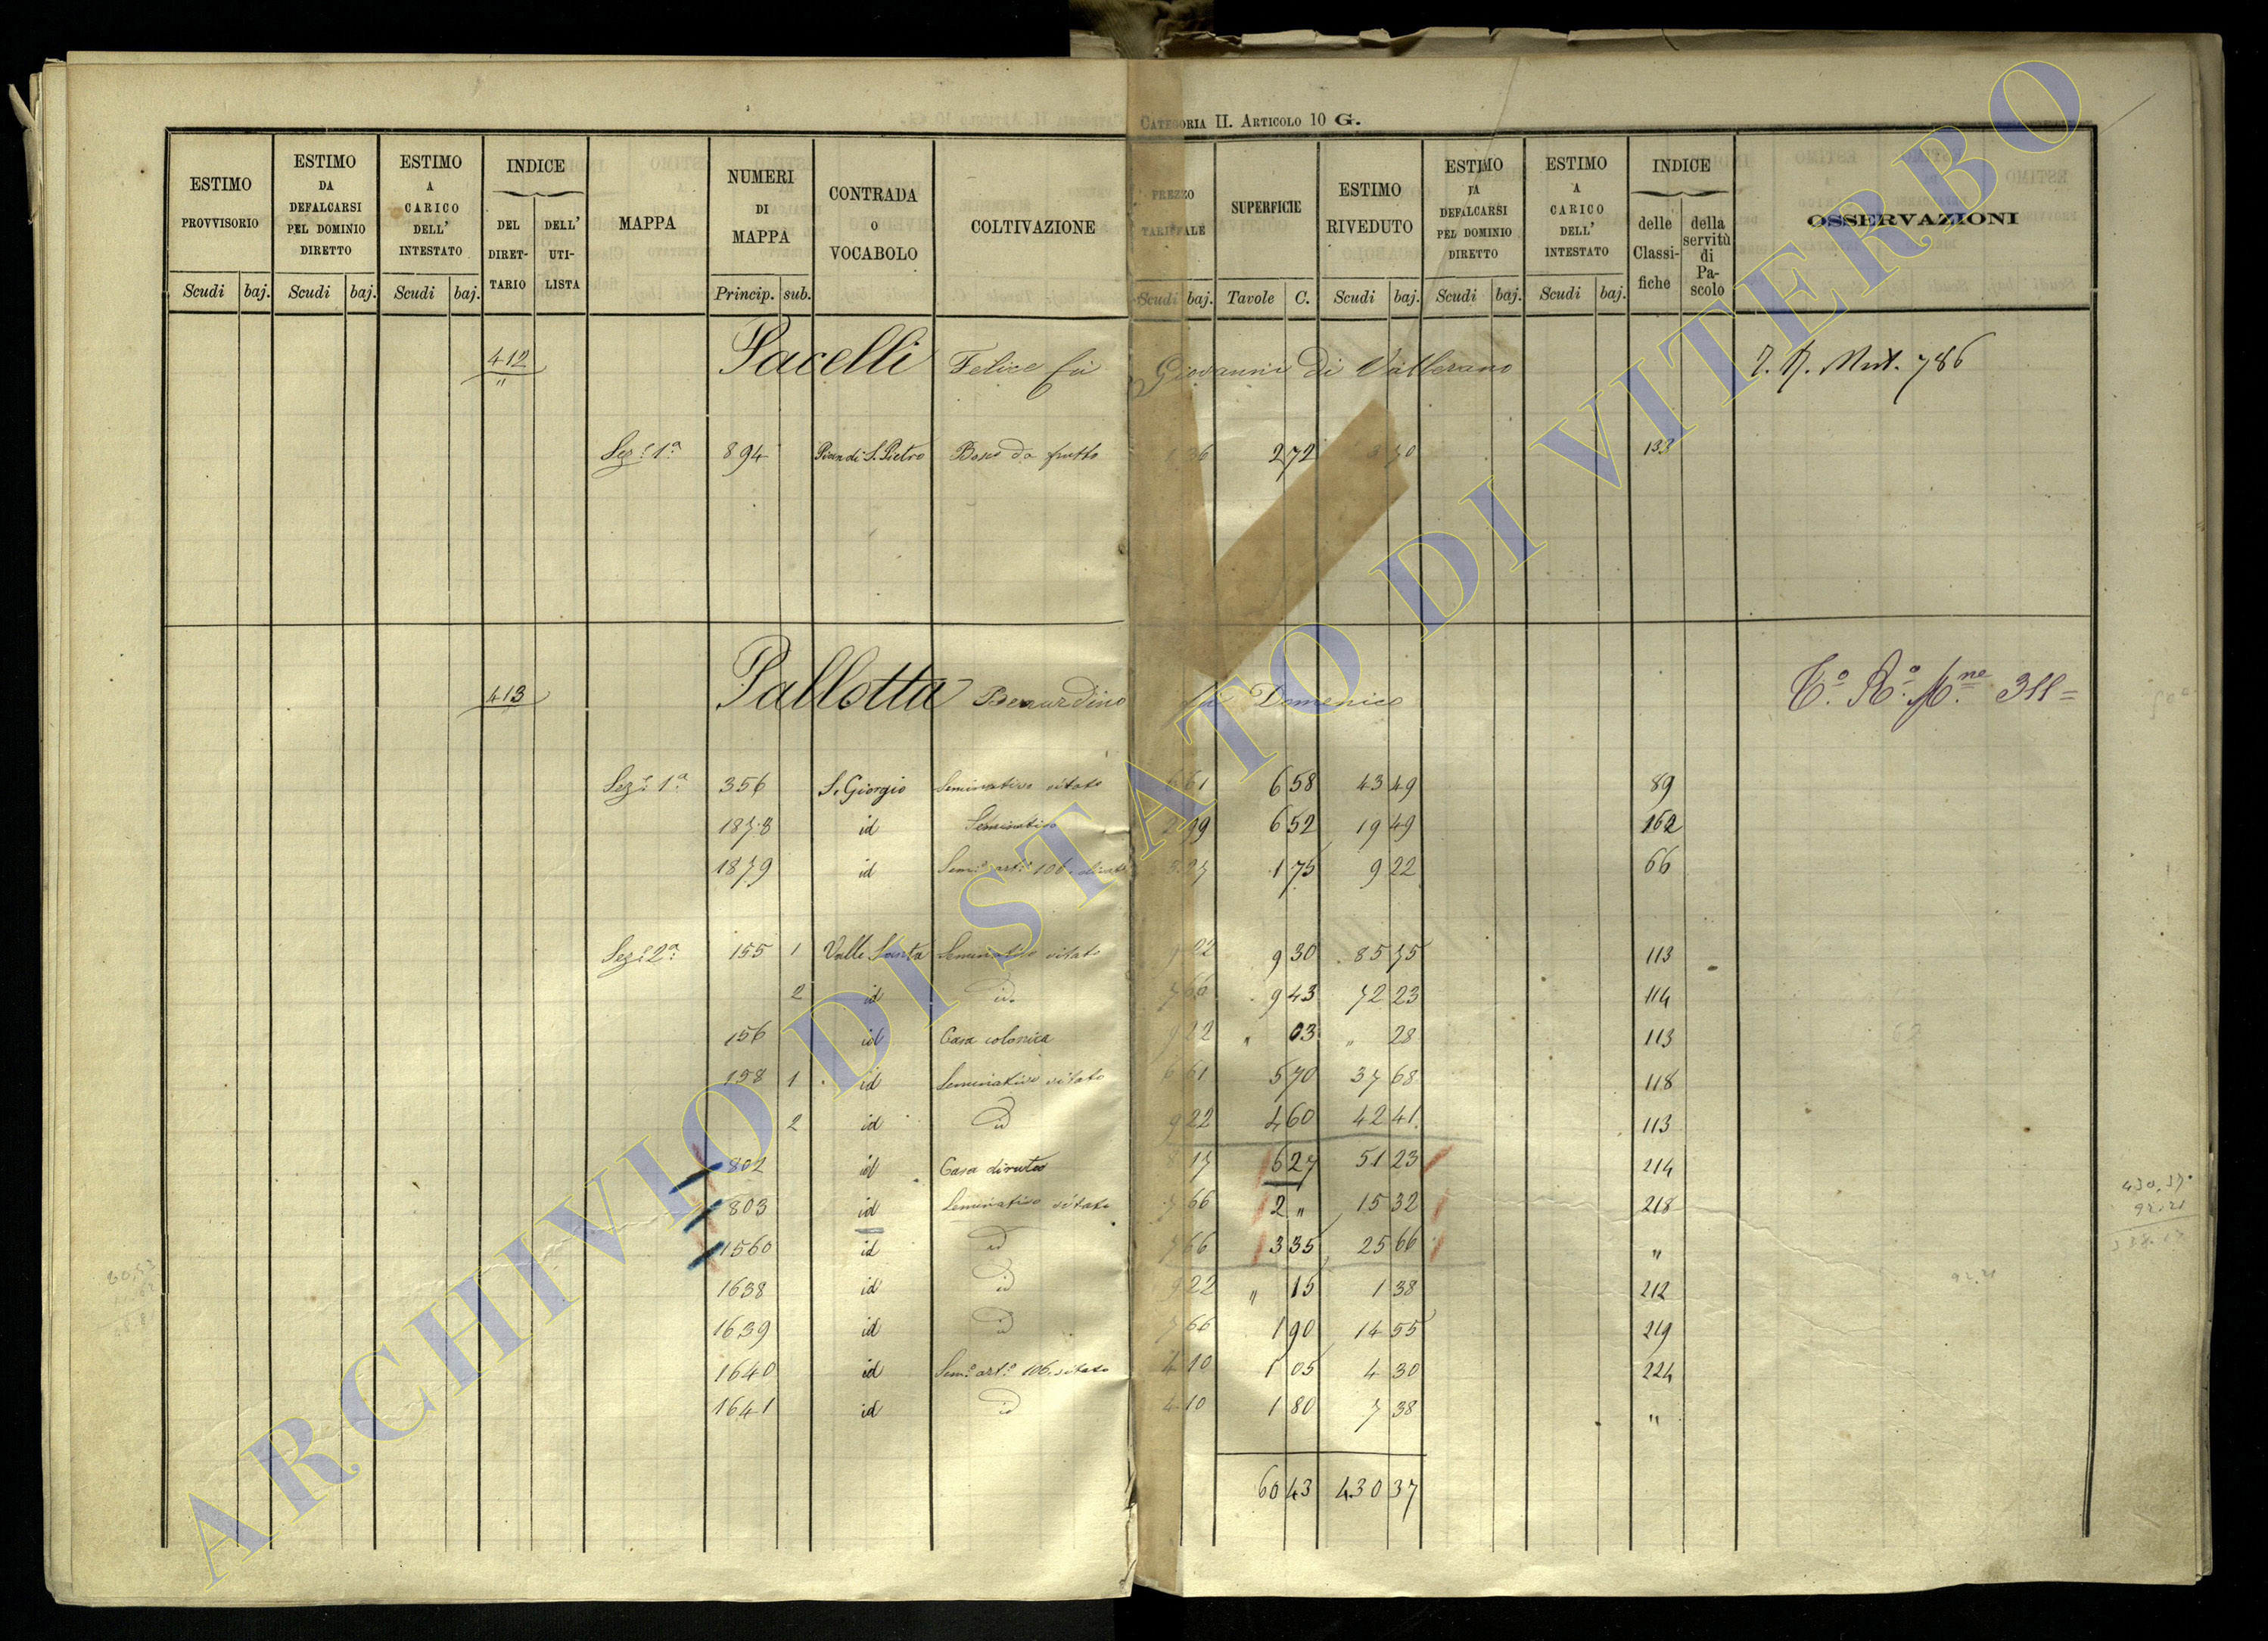 CATEGORIA II. ARTICOLO 10 G.
ESTIMO PROVVISORIO Scudi baj.
ESTIMO DA DEFALCARSI PEL DOMINIO DIRETTO Scudi baj.
ESTIMO A CARICO DELL' INTESTATO Scudi baj.
INDICE DEL DIRETTARIO DELL' UTILISTA
MAPPA
NUMERI DI MAPPA Princip. sub.
CONTRADA o VOCABOLO
COLTIVAZIONE
PREZZO TARIFFALE Scudi baj.
SUPERFICIE Tavole C.
ESTIMO RIVEDUTO Scudi baj.
ESTIMO DA DEFALCARSI PEL DOMINIO DIRETTO Scudi baj.
ESTIMO A CARICO DELL' INTESTATO Scudi baj.
INDICE delle Classifiche della servitù di Pascolo
OSSERVAZIONI
412 Pacelli Felice fu Giovanni di Vallerano Mut. 786
Sez.e 1a 894 Pian di S. Pietro Bosco da frutto 2 72 133
413 Pallotta Bernardino fu Domenico
Sez.e 1a 356 S. Giorgio Seminativo vitato 6 61 6 58 43 49 89
1878 id Seminativo 2 99 6 52 19 49 162
1879 id Sem.o art.o 106. olivato 5 27 1 75 9 22 66
Sez.e 2a 155 1 Valle Santa Seminativo vitato 9 22 9 30 85 75 113
2 id id. 7 66 9 43 72 23 114
156 id Casa colonica 9 22 " 03 " 28 113
158 1 id Seminativo vitato 6 61 5 70 37 68 118
2 id id 9 22 4 60 42 41 113
802 id Casa diruta 8 17 6 27 51 23 214
803 id Seminativo vitato 7 66 2 " 15 32 218
1560 id id 7 66 3 35 25 66 "
1638 id id 9 22 " 15 1 38 212
1639 id id 7 66 1 90 14 55 219
1640 id Sem.o art.o 106. vitato 4 10 1 05 4 30 224
1641 id id 4 10 1 80 7 38 "
60 43 430 37
430,37
92.21
92.21
ARCHIVIO DI STATO DI VITERBO